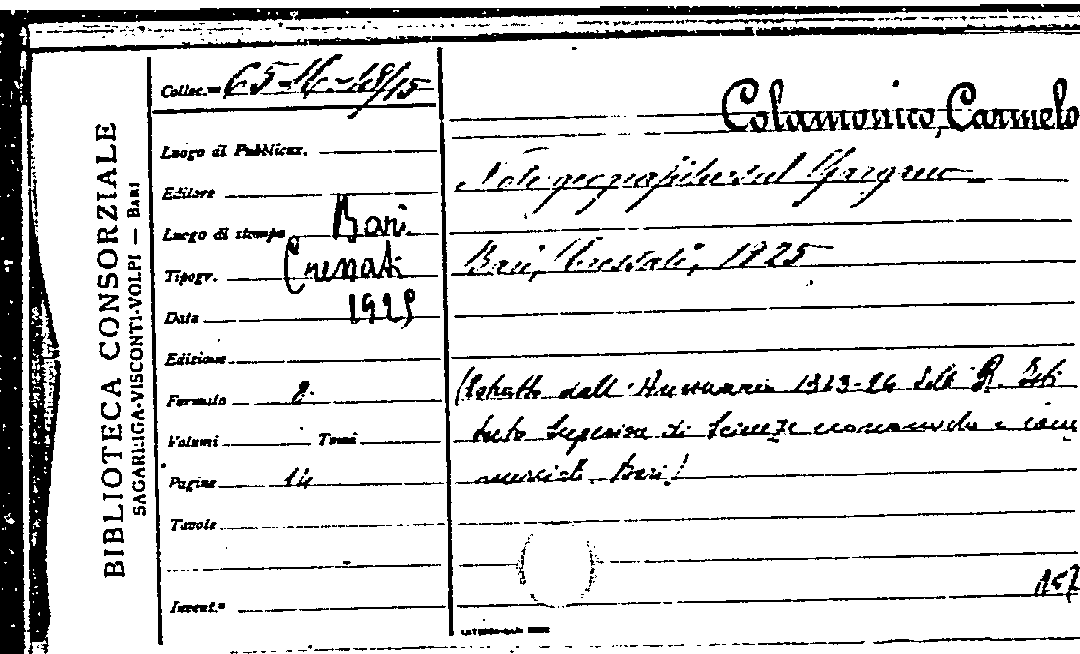 BIBLIOTECA CONSORZIALE
SAGARRIGA-VISCONTI-VOLPI — BARI
Colloc.ne 65-16-48/15
Luogo di Pubblicaz.
Editore
Luogo di stampa Bari
Tipogr. Cressati
Data 1925
Edizione
Formato 8.
Volumi Tomi
Pagine 14
Tavole
Invent.le
Colamonico, Carmelo
Note geografiche sul Gargano
Bari, Cressati, 1925
(Estratto dall'Annuario 1923-24 del R. Isti
tuto Superiore di Scienze economiche e com
merciali. Bari)
157